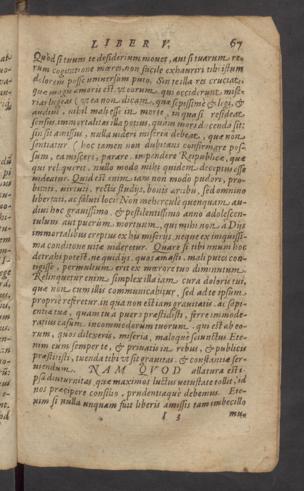 LIBER V. 67
Quòd si tuum te desiderium mouet, aut si tuarum re-
rum cogitatione mœres, non facile exhauriri tibi istum
dolorem posse vniuersum puto. Sin te illa res cruciat,
quæ magis amoris est, vt eorum, qui occiderunt mise-
rias lugeas (vt ea non dicam, quæ sæpissimè & legi, &
audiui, nihil mali esse in morte, in qua si resideat
sensus, immortalitas illa potius, quàm mors ducenda sit:
sin sit amissus, nulla videri miseria debeat, quæ non
sentiatur) hoc tamen non dubitans confirmare pos-
sum, ea misceri, parare, impendere Reipublicæ, quæ
qui reliquerit, nullo modo mihi quidem deceptus esse
videatur. Quid est enim iam non modo pudori, pro-
bitati, virtuti, rectis studijs, bonis artibus, sed omnino
libertati, ac saluti loci? Non mehercule quemquam au-
diui hoc grauissimo, & pestilentissimo anno adolescen-
tulum aut puerum mortuum, qui mihi non à Dijs
immortalibus ereptus ex his miserijs, neque ex iniquissi-
ma conditione vitæ videretur. Quare si tibi vnum hoc
detrahi potest, ne quid ijs, quos amasti, mali putes con-
tigisse, permultum erit ex mœrore tuo diminutum.
Relinquetur enim simplex illa iam cura doloris tui,
quæ non cum illis communicabitur, sed ad te ipsum
propriè referetur, in qua non est iam grauitatis, ac sapi-
entiæ tuæ, quam tu à puero præstitisti, ferre immode-
ratius casum incommodorum tuorum, qui est ab eo-
rum, quos dilexeris, miseria, maloque seiunctus. Ete-
nim eum semper te, & priuatis in rebus, & publicis
præstitisti, tuenda tibi vt sit grauitas, & constantiæ ser-
uiendum. NAM QVOD allatura est i-
psa diuturnitas, quæ maximos luctus vetustate tollit, id
nos præcipere consilio, prudentiaque debemus. Ete-
nim si nulla vnquam fuit liberis amissis tam imbecillo
I 3 mu-